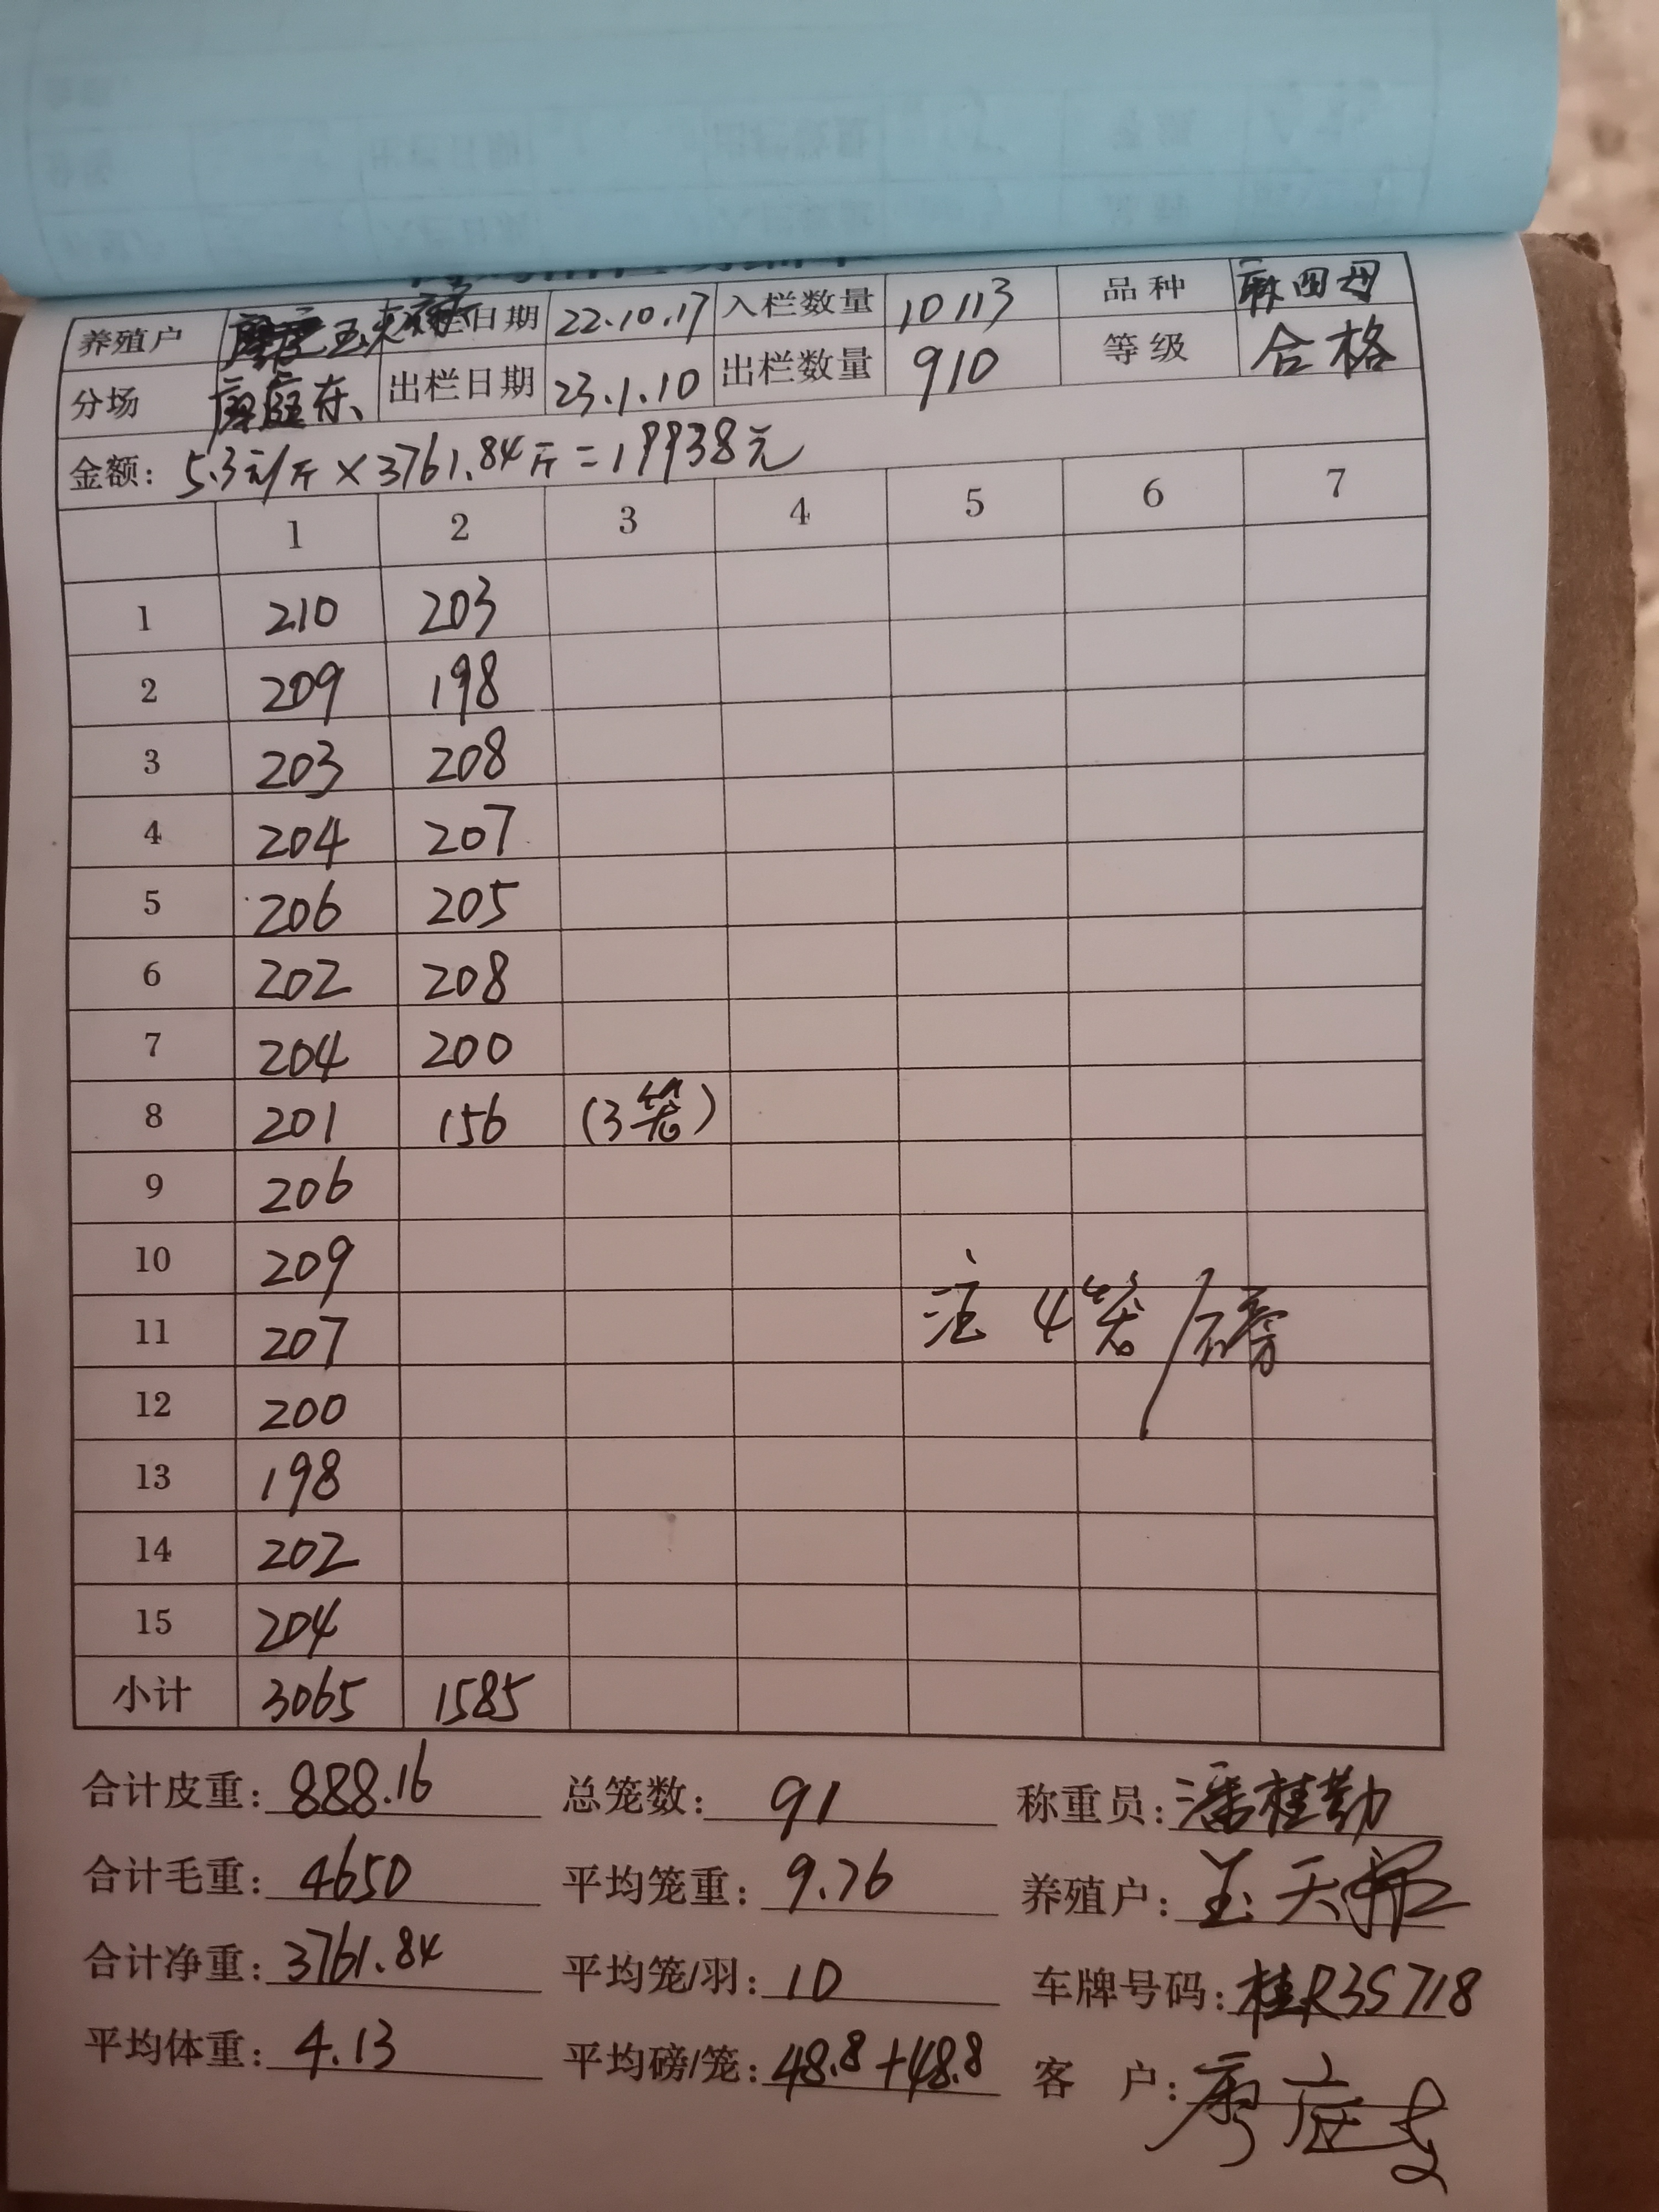 养殖户 玉天 栏日期 22.10.17 入栏数量 10113 品种 麻四母
分场 庭东 出栏日期 23.1.10 出栏数量 910 等级 合格
金额: 5.3元/斤×3761.84斤=19938元
1 2 3 4 5 6 7
1 210 203
2 209 198
3 203 208
4 204 207
5 206 205
6 202 208
7 204 200
8 201 156 (3笼)
9 206
10 209
11 207 注 4笼/磅
12 200
13 198
14 202
15 204
小计 3065 1585
合计皮重: 888.16 总笼数: 91 称重员: 潘桂勤
合计毛重: 4650 平均笼重: 9.76 养殖户: 玉天
合计净重: 3761.84 平均笼/羽: 10 车牌号码: 桂R3S718
平均体重: 4.13 平均磅/笼: 48.8+48.8 客 户: